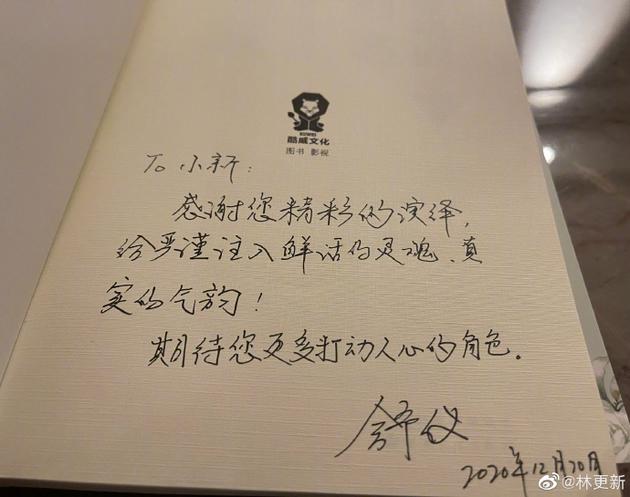 酷威文化
图书 影视
To 小新：
感谢您精彩的演绎，
给严谨注入鲜活的灵魂、真
实的气韵！
期待您更多打动人心的角色。
舒仪
2020年12月20日
@林更新